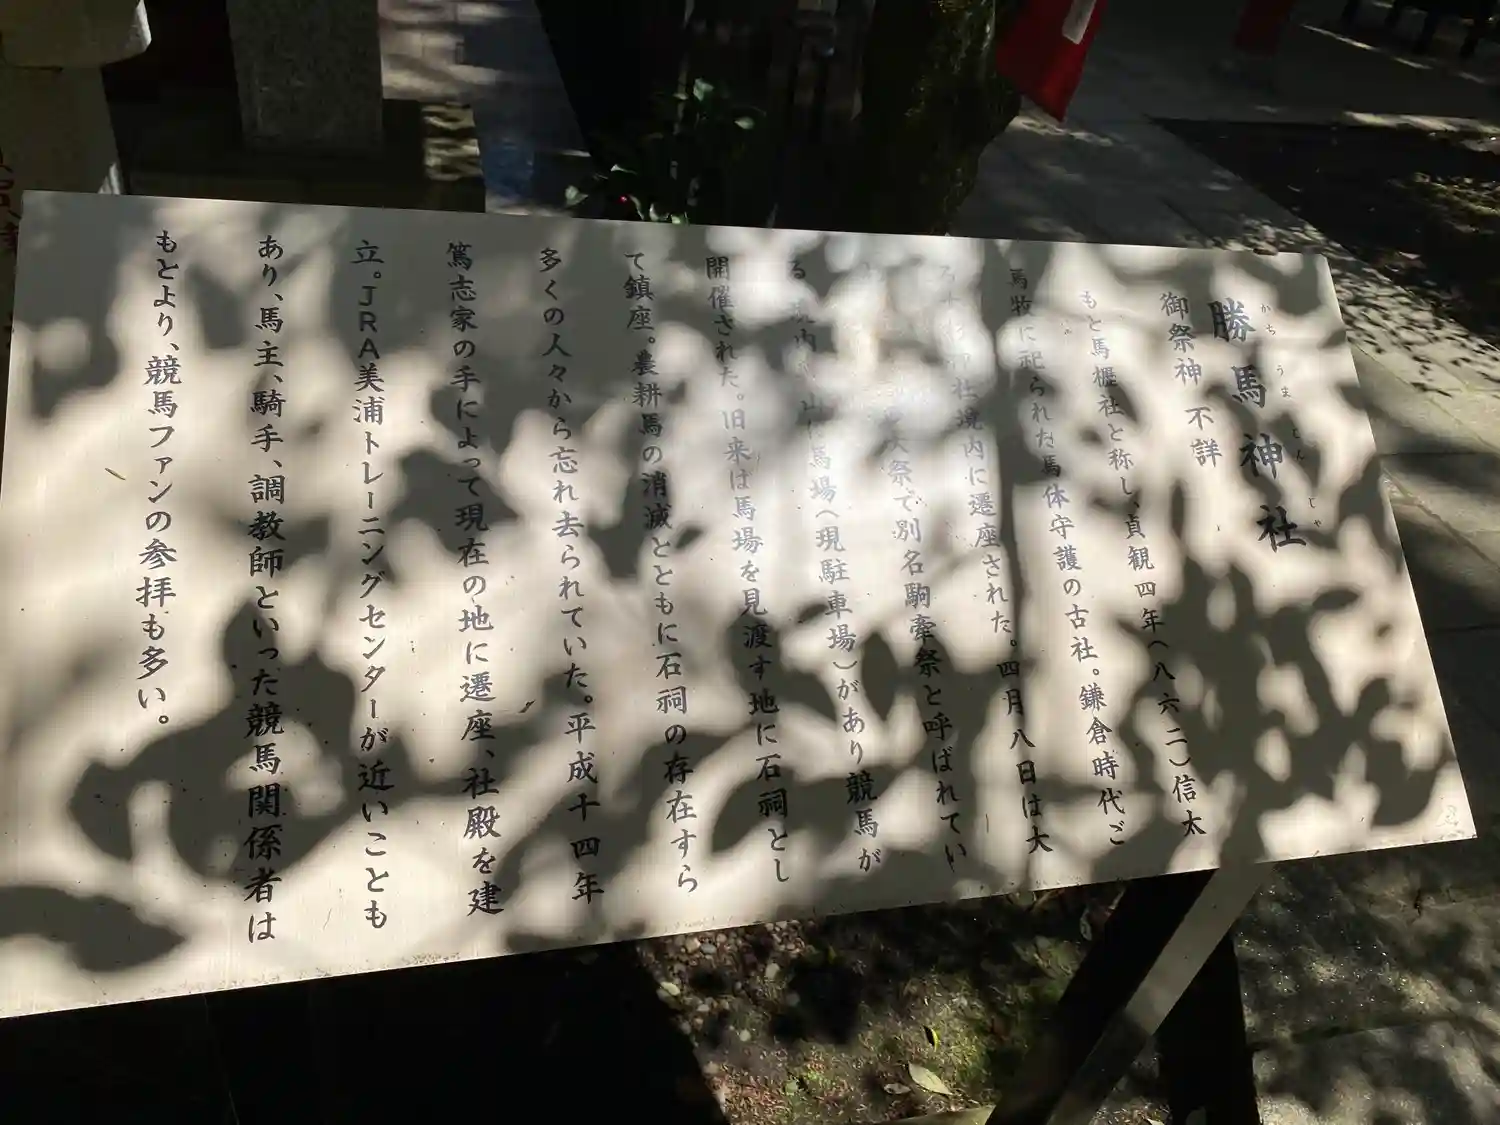 勝馬神社
かちうまじんじゃ
御祭神 不詳
もと馬櫪社と称し、貞観四年(八六二)信太
馬牧に祀られた馬体守護の古社。鎌倉時代ご
神社境内に遷座された。四月八日は大
祭で別名駒牽祭と呼ばれてい
る。境内 馬場(現駐車場)があり競馬が
開催された。旧来は馬場を見渡す地に石祠とし
て鎮座。農耕馬の消滅とともに石祠の存在すら
多くの人々から忘れ去られていた。平成十四年
篤志家の手によって現在の地に遷座、社殿を建
立。JRA美浦トレーニングセンターが近いことも
あり、馬主、騎手、調教師といった競馬関係者は
もとより、競馬ファンの参拝も多い。